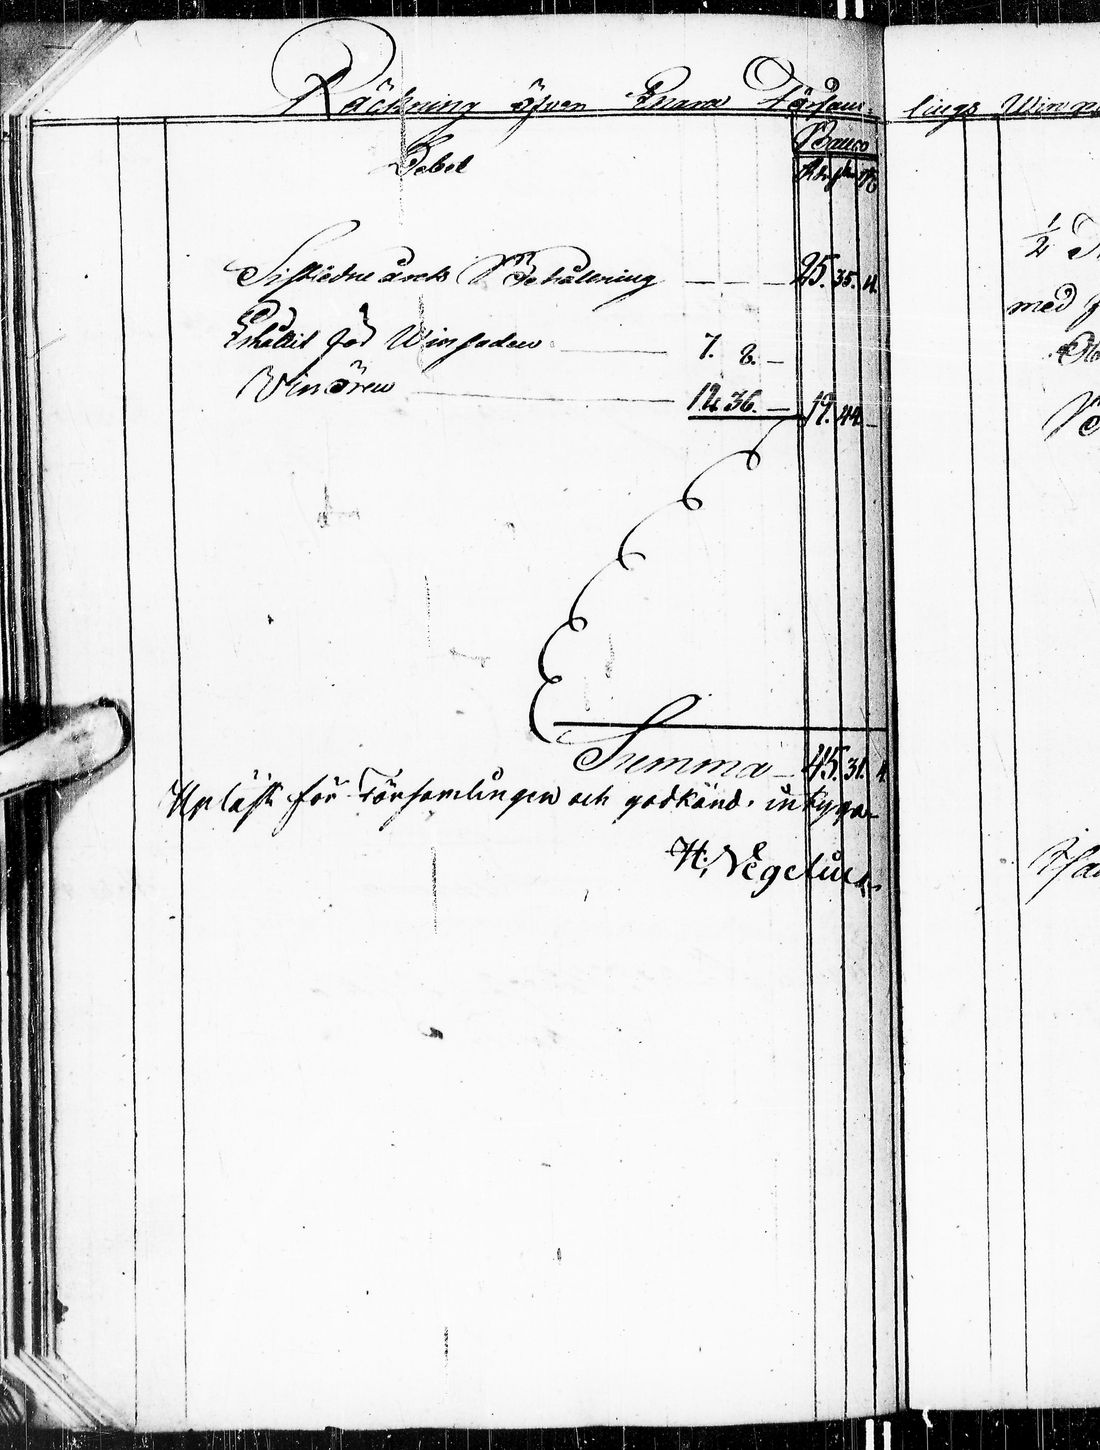 Räckning öfver Enare Församlings Win
Banco
Debet
Rdr sk rst
Sistledne årets Behållning — — — 25. 35. 4.
Erhållit för Winsaden — 7. 8. —
Vinören — 12 36. — 19. 44. —
Summa — 45. 31. 4.
Upläst för Församlingen och godkänd, intygar
H. Vegelius
½
med